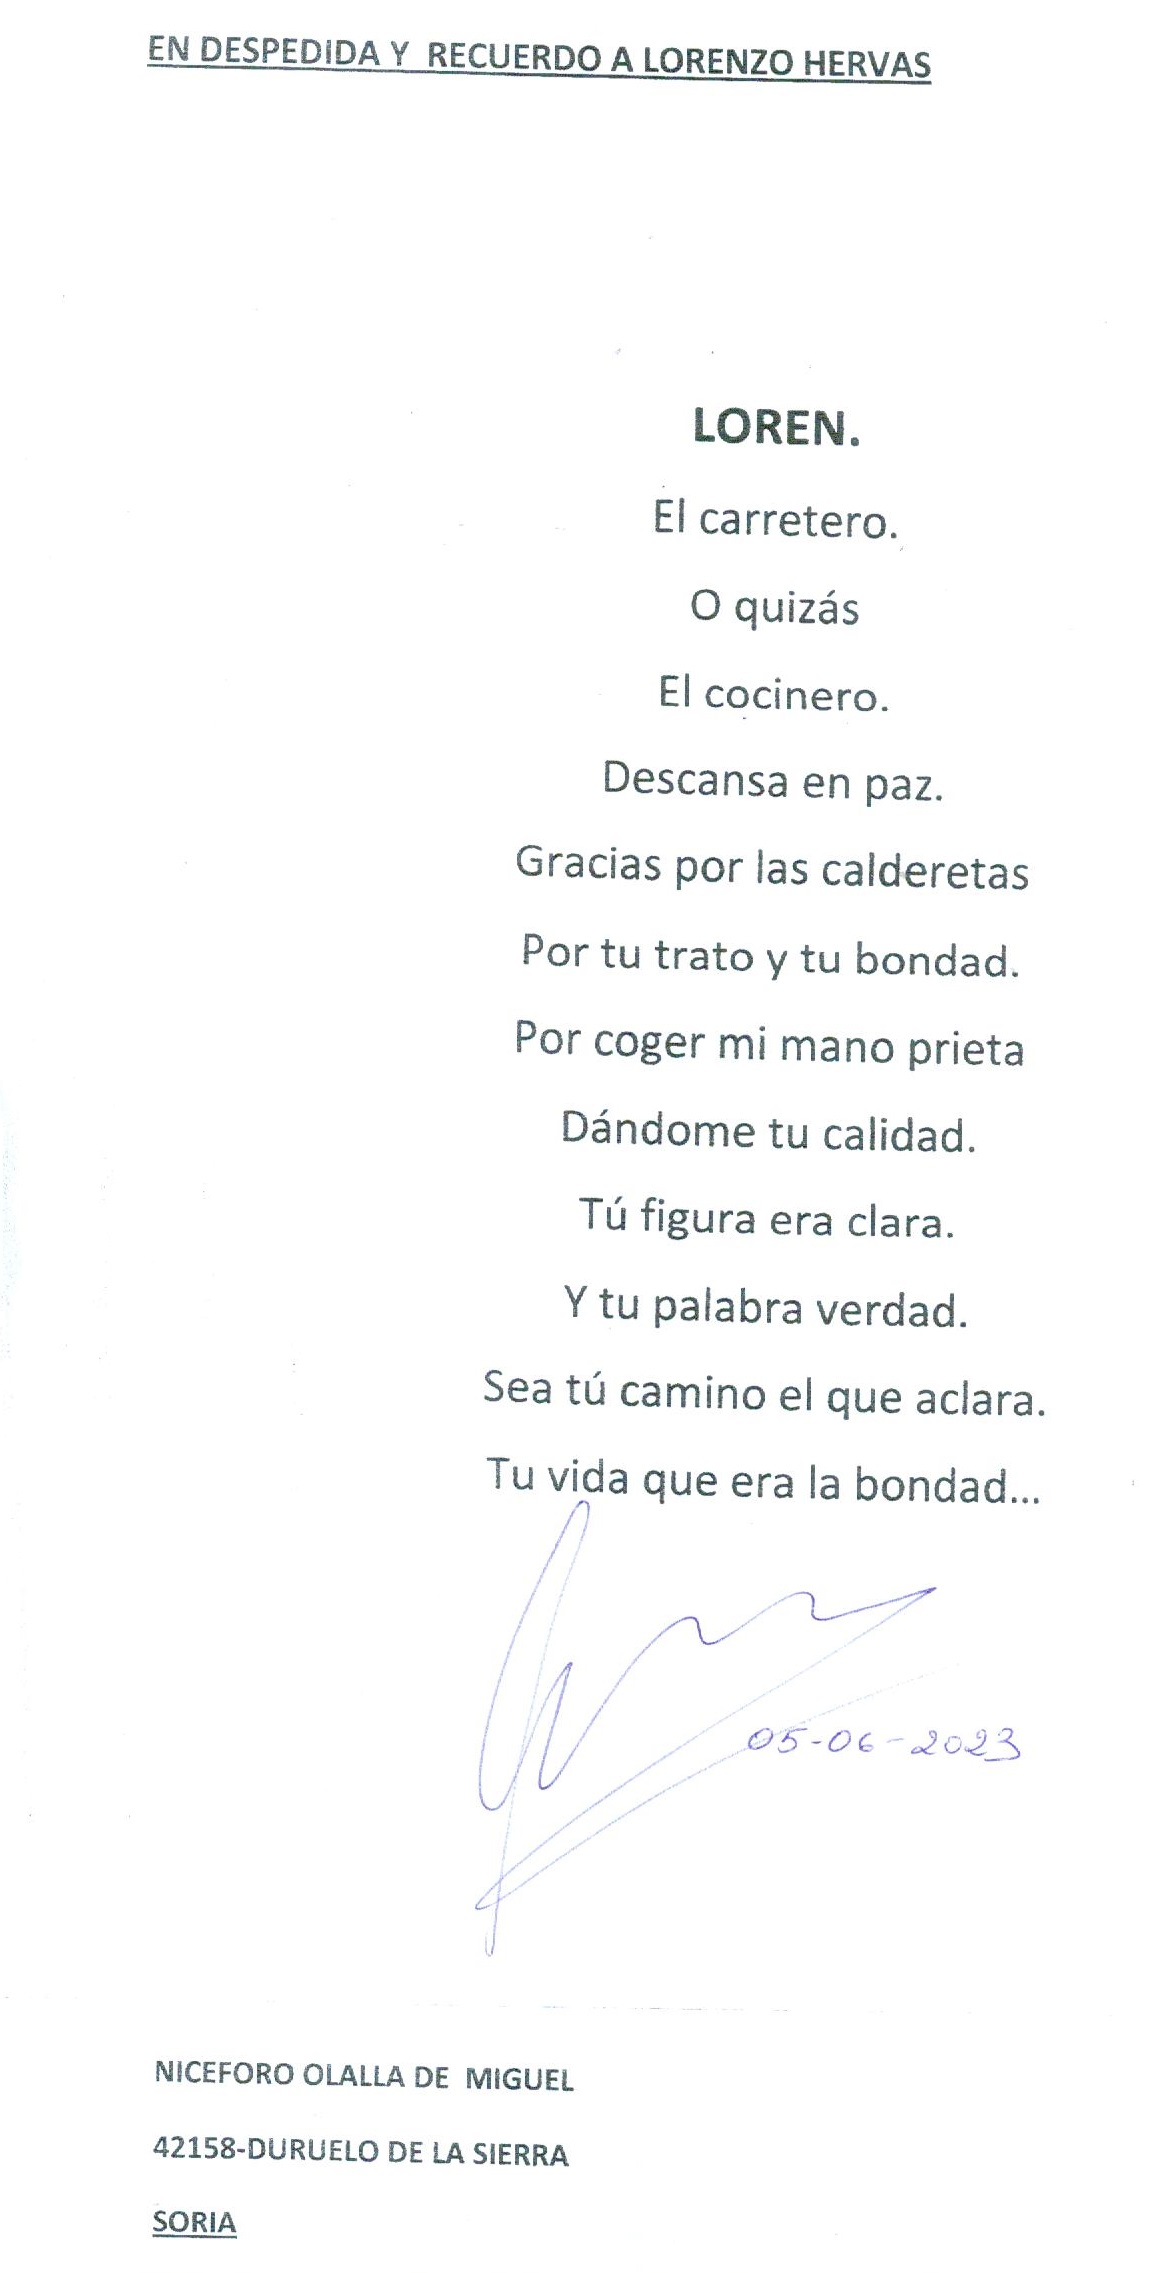 EN DESPEDIDA Y RECUERDO A LORENZO HERVAS
LOREN.
El carretero.
O quizás
El cocinero.
Descansa en paz.
Gracias por las calderetas
Por tu trato y tu bondad.
Por coger mi mano prieta
Dándome tu calidad.
Tú figura era clara.
Y tu palabra verdad.
Sea tú camino el que aclara.
Tu vida que era la bondad...
05-06-2023
NICEFORO OLALLA DE MIGUEL
42158-DURUELO DE LA SIERRA
SORIA